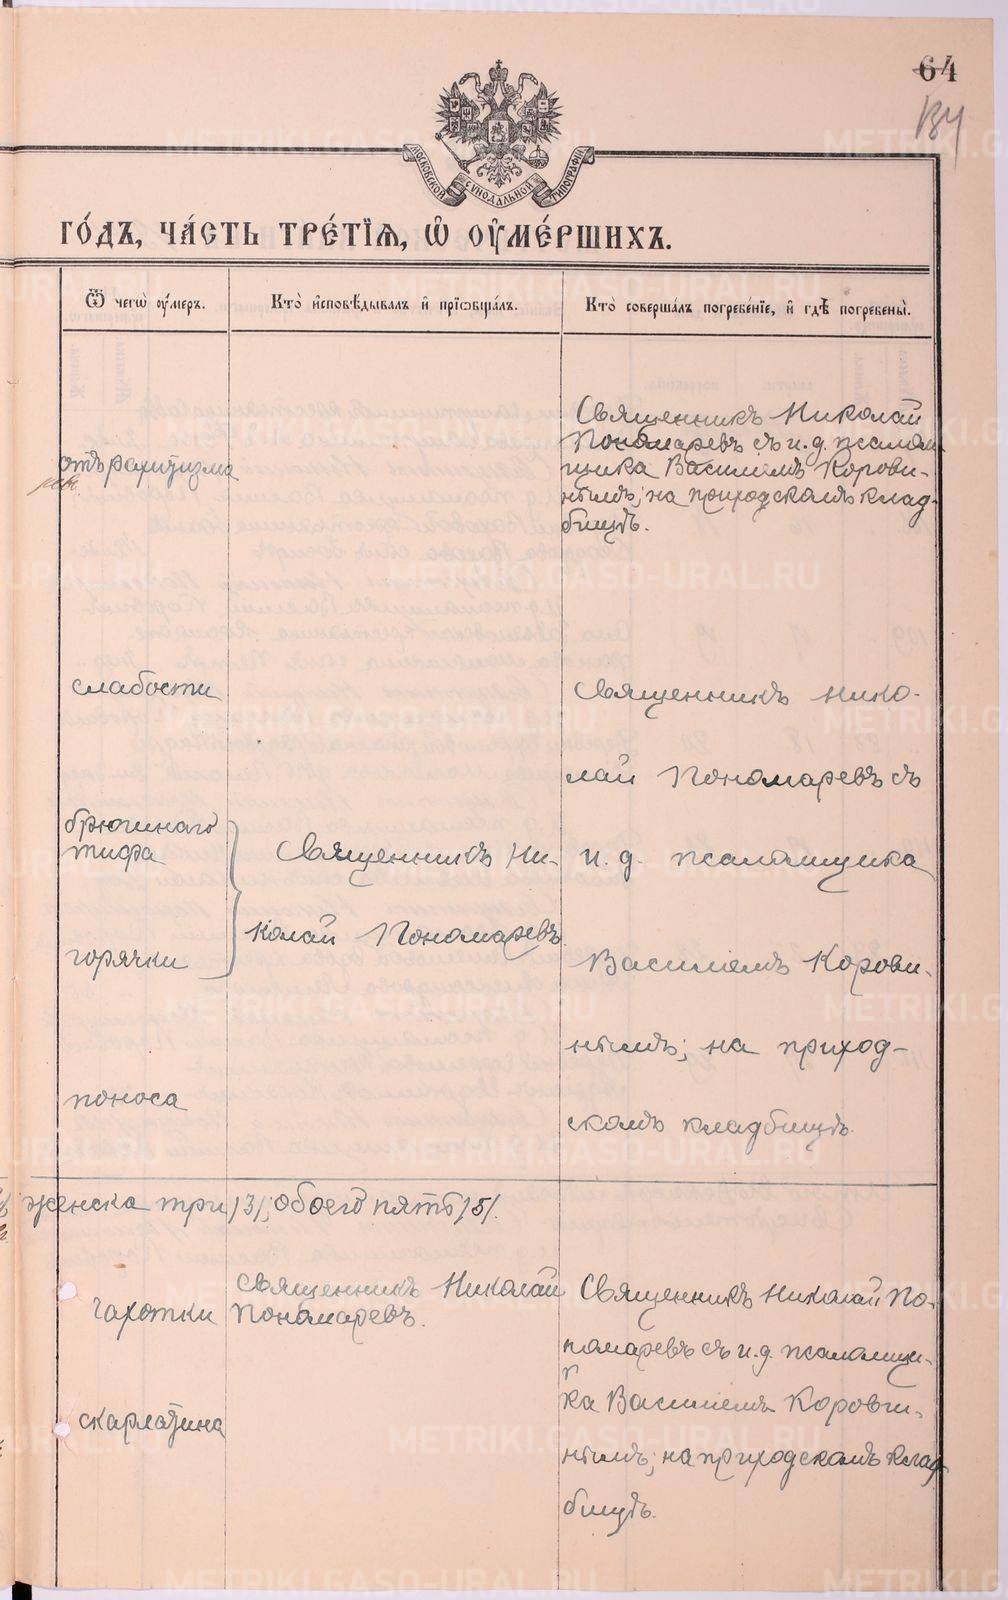 64
134
МОСКОВСКОЙ СѴНОДАЛЬНОЙ ТИПОГРАФІИ
ГО́ДЪ, ЧА́СТЬ ТРЕ́ТІѦ, Ѡ҆ ОУ҆МЕ́РШИХЪ.
Ѿ чегѡ̀ оу҆́меръ.
Кто̀ и҆сповѣ́дывалъ и҆ прїѡбща́лъ.
Кто̀ соверша́лъ погребе́нїе, и҆ гдѣ̀ погребены̀.
отъ рахитизма
Священникъ Николай
Пономаревъ съ и. д. псалом
щика Василіемъ Корови-
нымъ; на приходскомъ клад-
бищѣ.
слабости
брюшнаго
тифа
горячки
поноса
Священникъ Ни-
колай Пономаревъ
Священникъ Нико-
лай Пономаревъ съ
и. д. псаломщика
Василіемъ Корови-
нымъ; на приход-
скомъ кладбищѣ.
женска три /3/, обоего пять /5/.
чахотки
скарлатина
Священникъ Николай
Пономаревъ.
Священникъ Николай По-
номаревъ съ и. д. псаломщи-
ка Василіемъ Корови-
нымъ; на приходскомъ клад
бищѣ.
METRIKI.GASO-URAL.RU